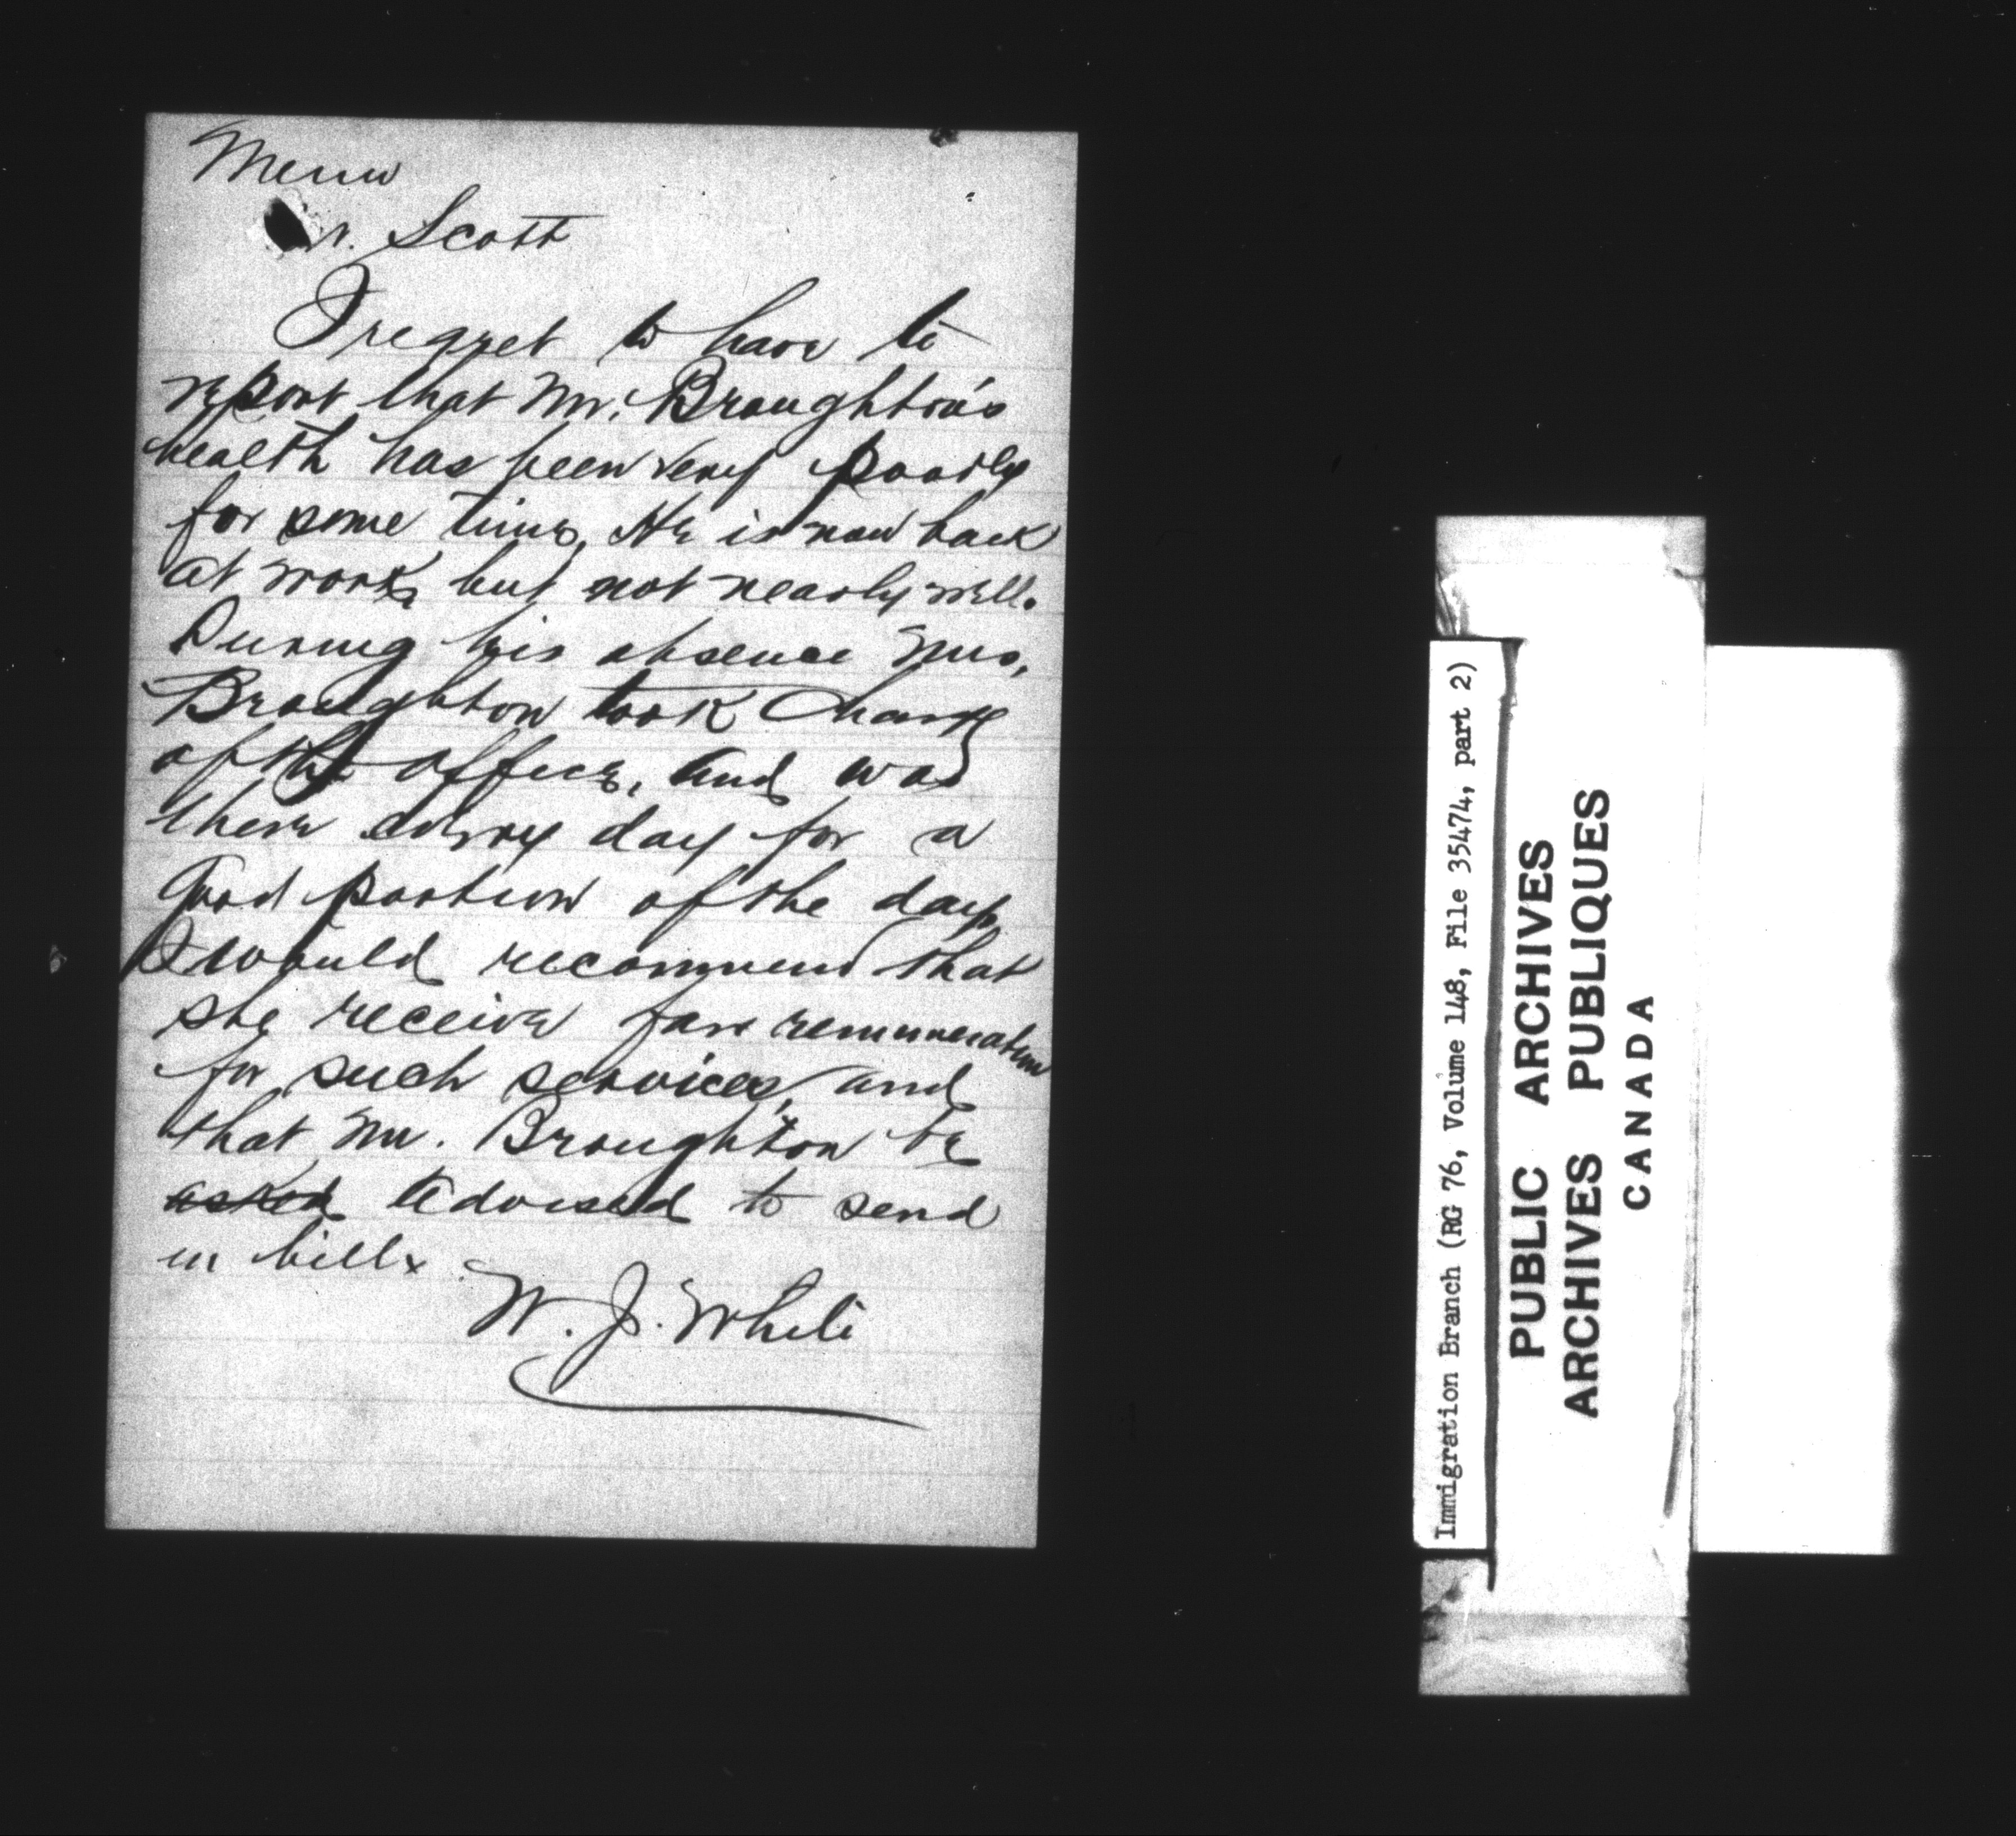 Memo
r. Scott
I regret to have to
report that Mr. Broughton's
health has been very poorly
for some time. He is now back
at work, but not nearly well.
During his absence Mrs.
Broughton took charge
of the office, and was
there every day for a
good portion of the day.
I would recommend that
she receive fair remuneration
for such services, and
that Mr. Broughton be
asked advised to send
in bill.
W. J. White
Immigration Branch (RG 76, Volume 148, File 35474, part 2)
PUBLIC ARCHIVES
ARCHIVES PUBLIQUES
CANADA